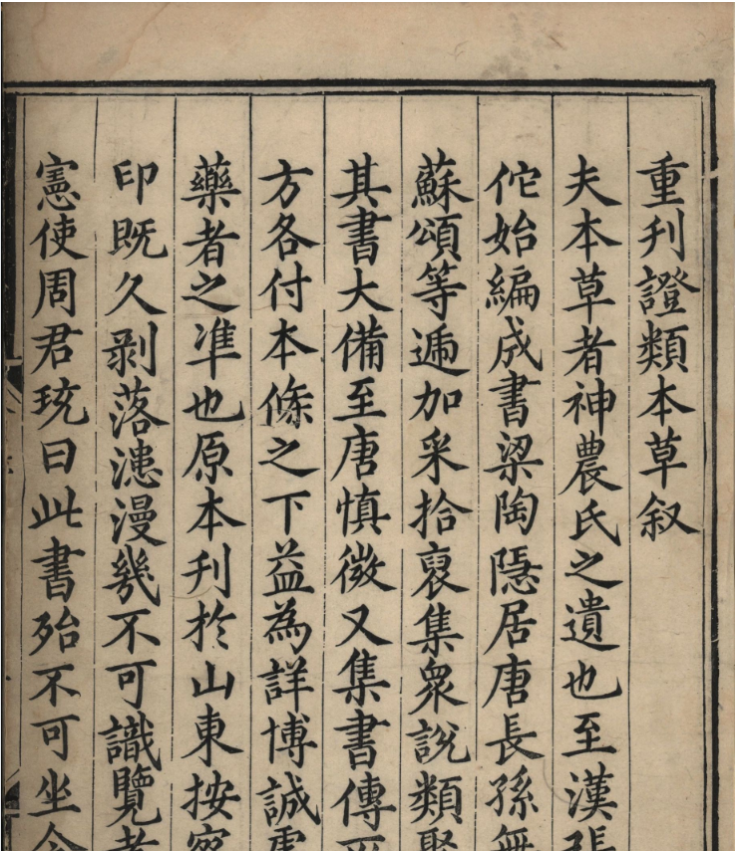 重刋證類本草叙
夫本草者神農氏之遺也至漢張
佗始編成書梁陶隱居唐長孫無
蘇頌等遞加采拾裒集衆說類聚
其書大備至唐慎微又集書傳
方各付本條之下益為詳博誠
藥者之凖也原本刋於山東按察
印既久剥落漶漫幾不可識覽者
憲使周君珫曰此書殆不可坐令